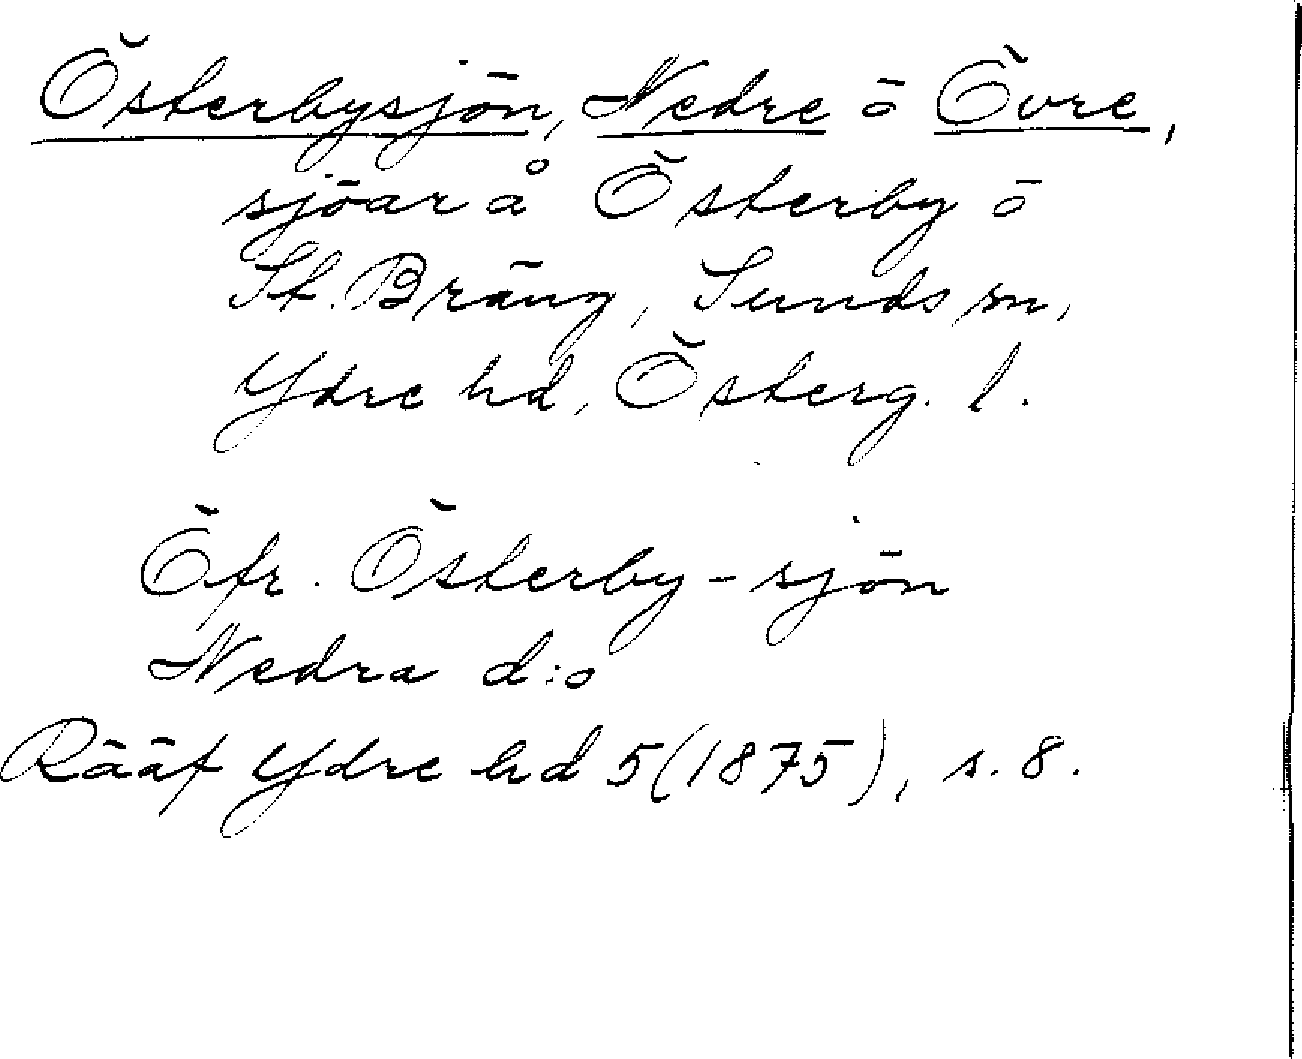 Österbysjön, Nedre ö Övre,
sjöar å Österby ö
St. Bräng, Sunds sn,
Ydre hd, Österg. l.
Öfr. Österby-sjön
Nedra d:o
Rääf Ydre hd 5(1875), s. 8.